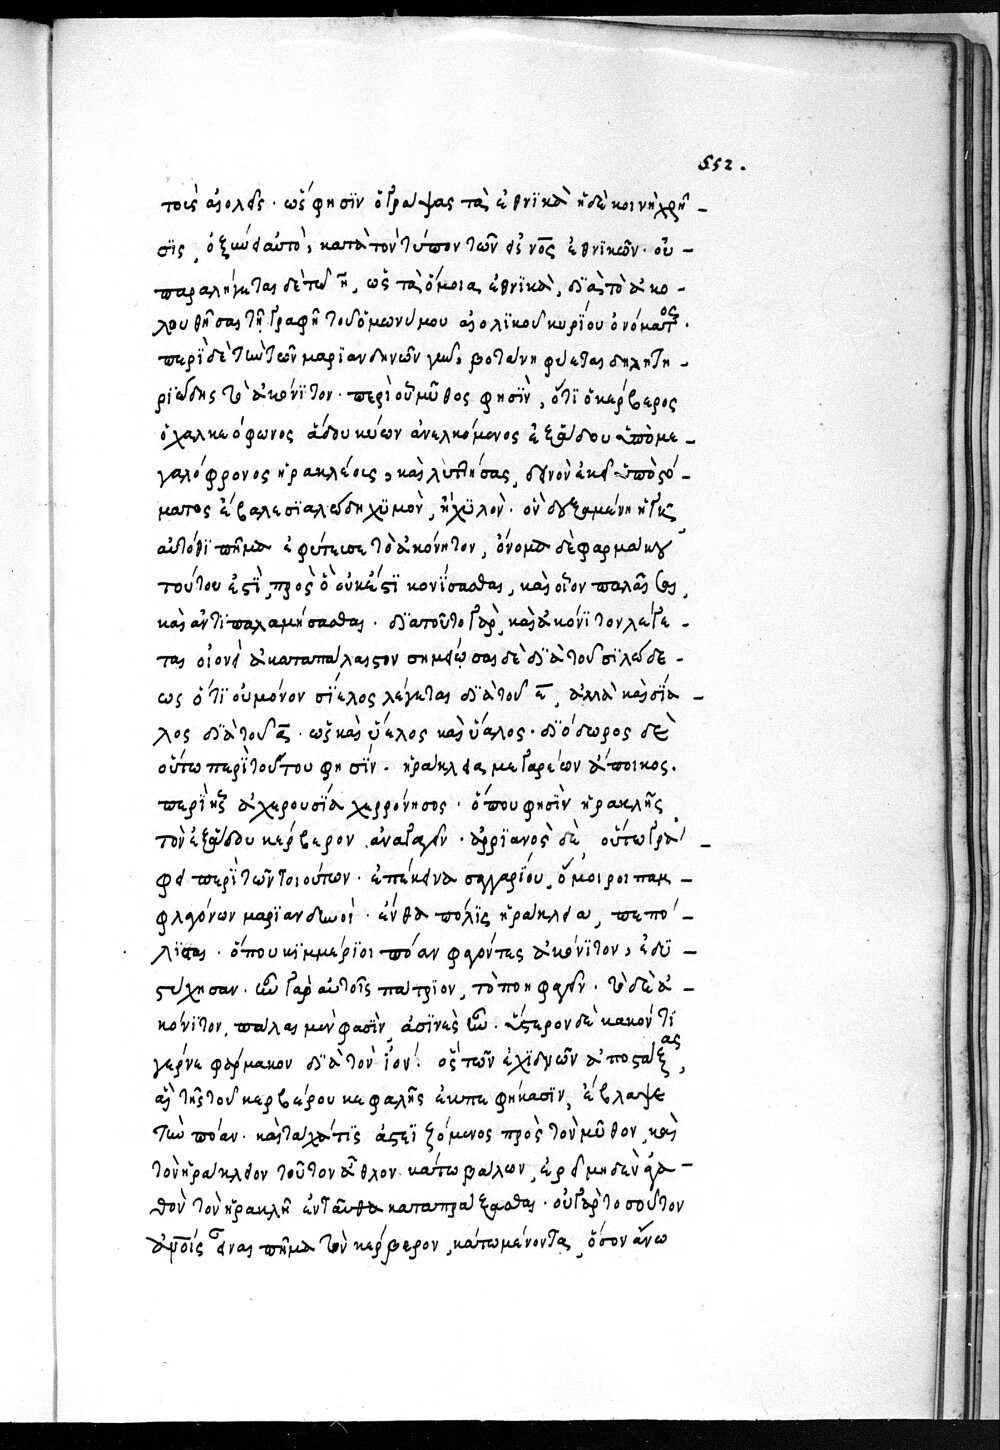 552.
τοῖς αἰολεῦσ. ὥς φησὶν ὁ γράψας τὰ ἐθνικὰ ἡ δὲ κοινὴ χρῆ-
σις, ὀξύνει αὐτὸ, κατὰ τὸν τύπον τῶν εἰς νος ἐθνικῶν. οὐ-
παραλήγεται δὲ τῶ η, ὡς τὰ ὅμοια ἐθνικὰ, διὰ τὸ ἀκο-
λουθῆσαι τῆ γραφῆ τοῦ ὁμωνύμου αἰολικοῦ κυρίου ὀνόματος.
περὶ δὲ τὴν τῶν μαριανδηνῶν γῆν, βοτάνη φύεται δηλητη-
ριώδης τὸ ἀκόνιτον. περὶ οὗ μῦθος φησὶν, ὅτι ὁ κέρβερος
ὁ χαλκεόφωνος ἅδου κύων ἀνελκόμενος ἐξ ἅδου ὑπὸ με-
γαλόφρονος ἡρακλέους, καὶ λυτθήσας, δεινὸν ἐκεῖ ὑπὸ στό-
ματος ἔβαλε σιαλώδη χυμὸν, ἢ χυλὸν. ὃν δεξαμένη ἡ γῆ,
αὐτόθι πῆμα ἐφύτευσε τὸ ἀκόνητον, ὄνομα δὲ φαρμάκου
τούτου ἐστὶ, πρὸς ὃ οὐκ ἔστι κονίσασθαι, καὶ οἷον παλαῖσαι,
καὶ ἀντιπαλαμήσασθαι. διὰ τοῦτο γὰρ, καὶ ἀκόνιτον λέγε-
ται οἱονεὶ ἀκαταπάλαιστον σημείωσαι δὲ διὰ τοῦ σιλώδε-
ως ὅτι οὐ μόνον σίελος λέγεται διὰ τοῦ ε, ἀλλὰ καὶ σία-
λος διὰ τοῦ α. ὡς καὶ ὕελος καὶ ὕαλος. διόδωρος δὲ
οὕτω περὶ τούτου φησίν. ἡράκλεια μεγαρέων ἄποικος.
περὶ ἣν ἀχερουσία χερρόνησος. ὅπου φησὶν ἡρακλῆς
τὸν ἐξ ἅδου κέρβερον ἀναγαγεῖν. ἀρριανὸς δὲ οὕτω γρά-
φει περὶ τῶν τοιούτων. ἐπέκεινα σαγγαρίου, ὅμοιροι παμ-
φλαγόνων μαριανδυνοί. ἔνθα πόλις ἡράκλεια, πεπό-
λισται. ὅπου κιμμέριοι πόαν φαγόντες ἀκόνιτον, ἐδυ-
στύχησαν. ἦν γὰρ αὐτοῖς πάτριον, τὸ ποηφαγεῖν. τὸ δὲ ἀ-
κόνιτον, πάλαι μὲν φασὶν, ἀσινὲς ἦν. ὕστερον δὲ κακόν τι
γέρνε φάρμακον διὰ τὸν ἰόν. ὃς τῶν ἐχιδνῶν ἀποστάξας,
αἳ τῆς τοῦ κερβέρου κεφαλῆς ἐκπεφήκασιν, ἔβλαψε
τὴν πόαν. καὶ τάχα τις ἀστεϊζόμενος πρὸς τὸν μῦθον, καὶ
τὸν ἡράκλειον τοῦτον ἆθλον κάτω βάλλων, ἐρεῖ μηδὲν ἀγα-
θὸν τὸν ἡρακλῆ ἐνταῦθα καταπράξασθαι. οὐ γὰρ τοσοῦτον
ἀνοις εἶναι πῆμα τὸν κέρβερον, κάτω μένοντα, ὅσον ἄνω